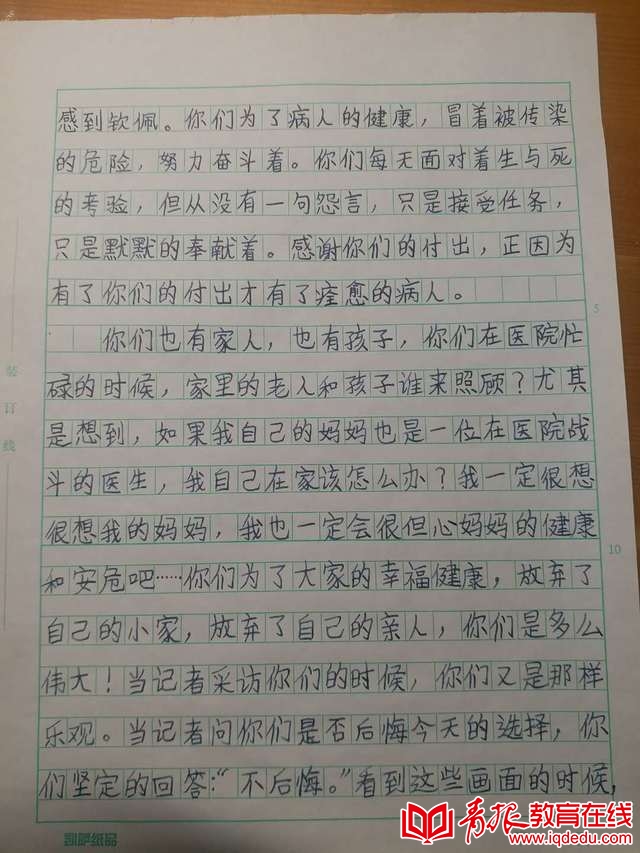 感到钦佩。你们为了病人的健康，冒着被传染
的危险，努力奋斗着。你们每天面对着生与死
的考验，但从没有一句怨言，只是接受任务，
只是默默的奉献着。感谢你们的付出，正因为
有了你们的付出才有了痊愈的病人。
5
你们也有家人，也有孩子，你们在医院忙
碌的时候，家里的老人和孩子谁来照顾？尤其
是想到，如果我自己的妈妈也是一位在医院战
斗的医生，我自己在家该怎么办？我一定很想
很想我的妈妈，我也一定会很但心妈妈的健康
10
和安危吧……你们为了大家的幸福健康，放弃了
自己的小家，放弃了自己的亲人，你们是多么
伟大！当记者采访你们的时候，你们又是那样
乐观。当记者问你们是否后悔今天的选择，你
们坚定的回答：“不后悔。”看到这些画面的时候，
装订线
凯萨纸品
青报教育在线
www.iqdedu.com